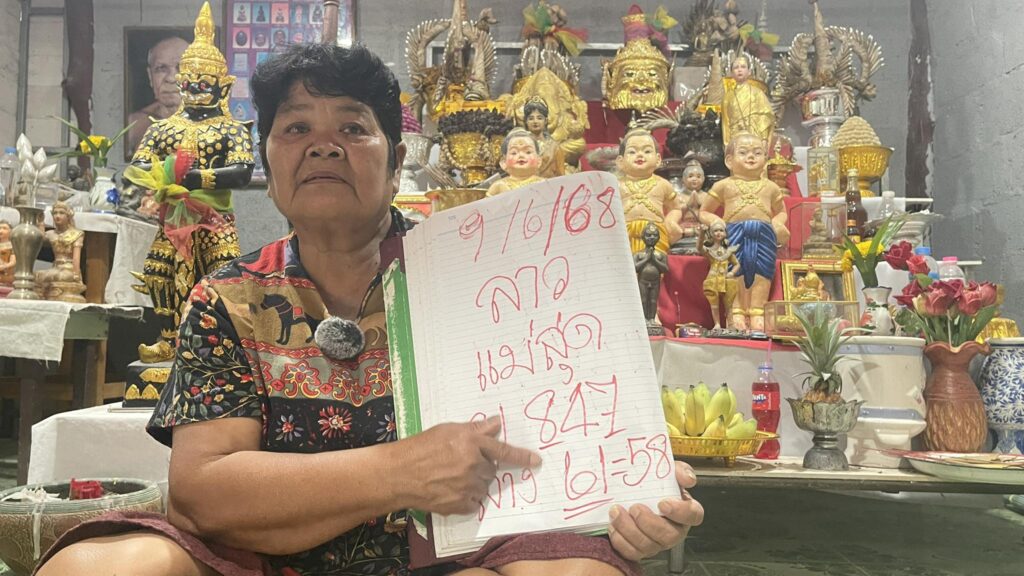 9/6/68
ลาว
แม่สุด
847
ล่าง 61=58